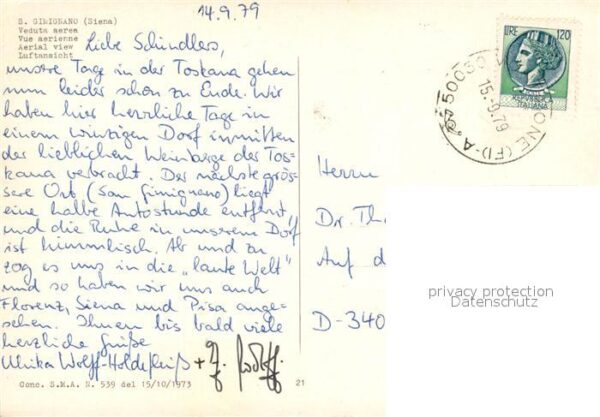 14.9.79
S. GIMIGNANO (Siena)
Veduta aerea
Vue aerienne
Aerial view
Luftansicht
Liebe Schindlers,
unsre Tage in der Toskana gehen
nun leider schon zu Ende. Wir
haben hier herrliche Tage in
einem winzigen Dorf inmitten
der lieblichen Weinberge der Tos-
kana verbracht. Der nächste grös-
sere Ort (San Gimignano) liegt
eine halbe Autostunde entfernt,
und die Ruhe in unserem Dorf
ist himmlisch. Ab und zu
zog es uns in die „laute Welt"
und so haben wir uns auch
Florenz, Siena und Pisa ange-
sehen. Ihnen bis bald viele
herzliche Grüße
Ulrika Wolff-Holdefleiß +
Conc. S.M.A. N. 539 del 15/10/1973
21
LIRE 120
REPUBBLICA
ITALIANA
15.9.79
Herrn
Dr. Th
Auf d
D-340
privacy protection
Datenschutz